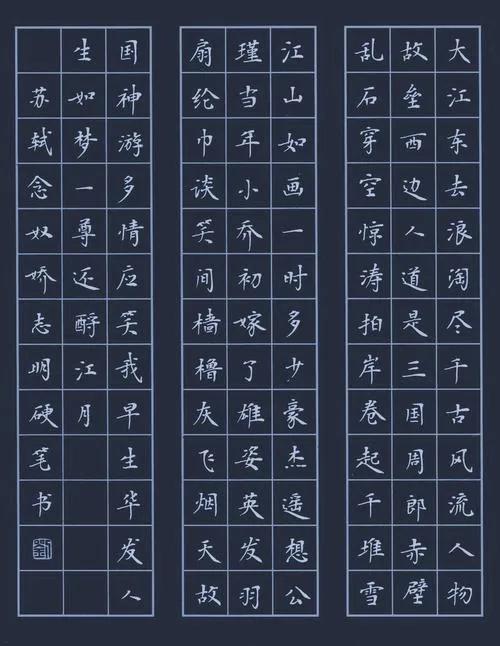 大江东去浪淘尽千古风流人物
故垒西边人道是三国周郎赤壁
乱石穿空惊涛拍岸卷起千堆雪
江山如画一时多少豪杰遥想公
瑾当年小乔初嫁了雄姿英发羽
扇纶巾谈笑间樯橹灰飞烟天故
国神游多情应笑我早生华发人
生如梦一尊还酹江月
苏轼念奴娇志明硬笔书